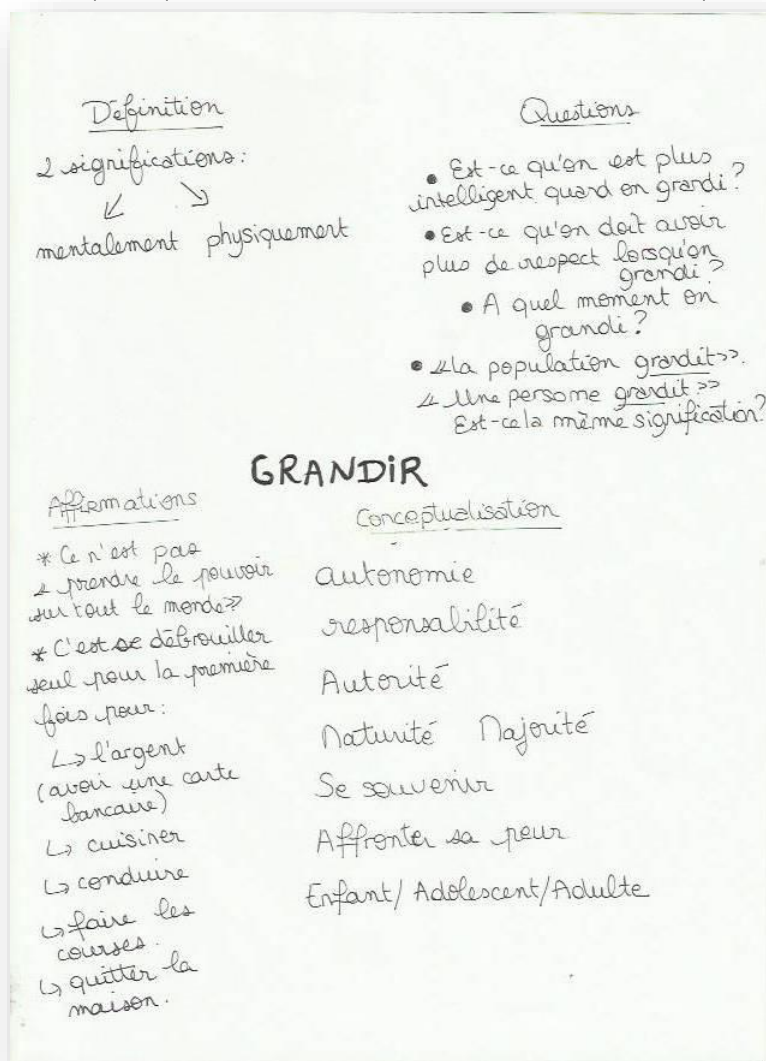 Définition
2 significations:
mentalement physiquement
Questions
• Est-ce qu'on est plus
intelligent quand on grandi?
• Est-ce qu'on doit avoir
plus de respect lorsqu'on
grandi?
• A quel moment on
grandi?
• «la population grandit».
« Une persome grandit»
Est-ce la même signification?
GRANDIR
Affirmations
* Ce n'est pas
« prendre le pouvoir
sur tout le monde»
* C'est se débrouiller
seul pour la première
fois pour:
↳ l'argent
(avoir une carte
bancaire)
↳ cuisiner
↳ conduire
↳ faire les
courses.
↳ quitter la
maison.
Conceptualisation
autonomie
responsabilité
Autorité
Maturité Majorité
Se souvenir
Affronter sa peur
Enfant/Adolescent/Adulte